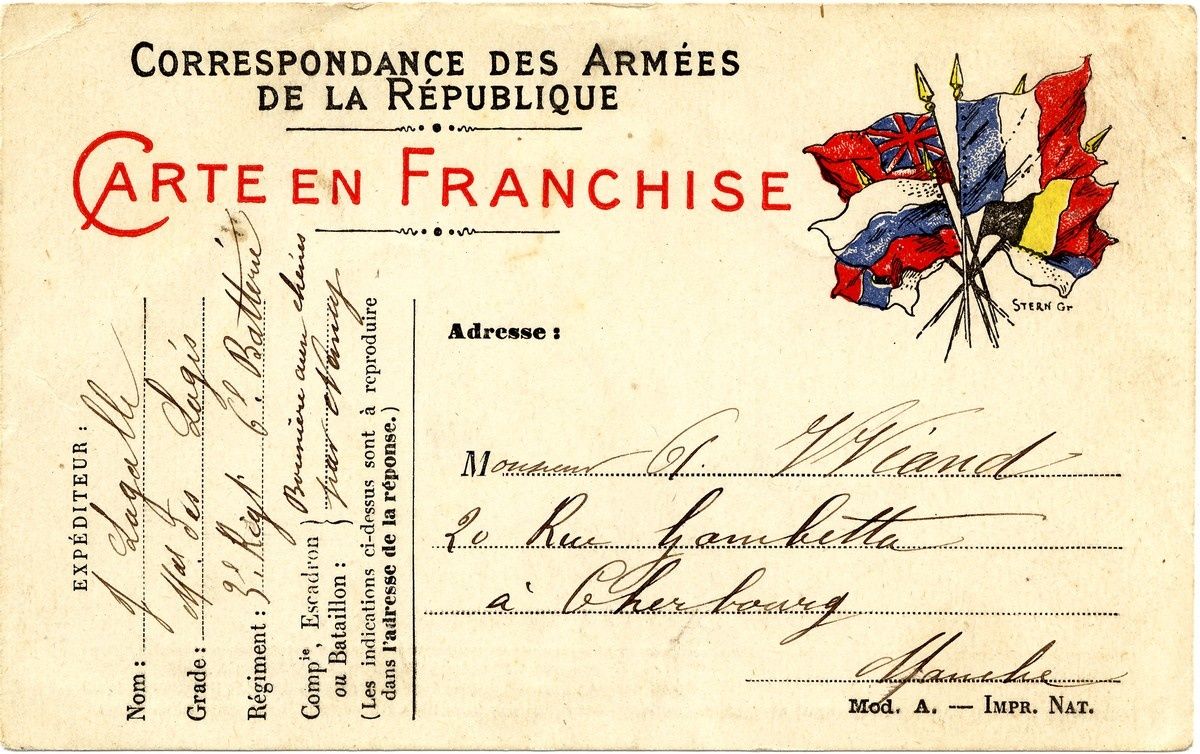 CORRESPONDANCE DES ARMÉES
DE LA RÉPUBLIQUE
CARTE EN FRANCHISE
STERN Gr
EXPÉDITEUR :
Nom : J Lagalle
Grade : Mal des Logis
Régiment : 3e Régt 6e Batterie
Compie, Escadron
ou Bataillon : }
aux chênes
par Nancy
(Les indications ci-dessus sont à reproduire
dans l'adresse de la réponse.)
Adresse :
Monsieur P. Wiand
20 Rue Gambetta
à Cherbourg
Manche
Mod. A. — IMPR. NAT.